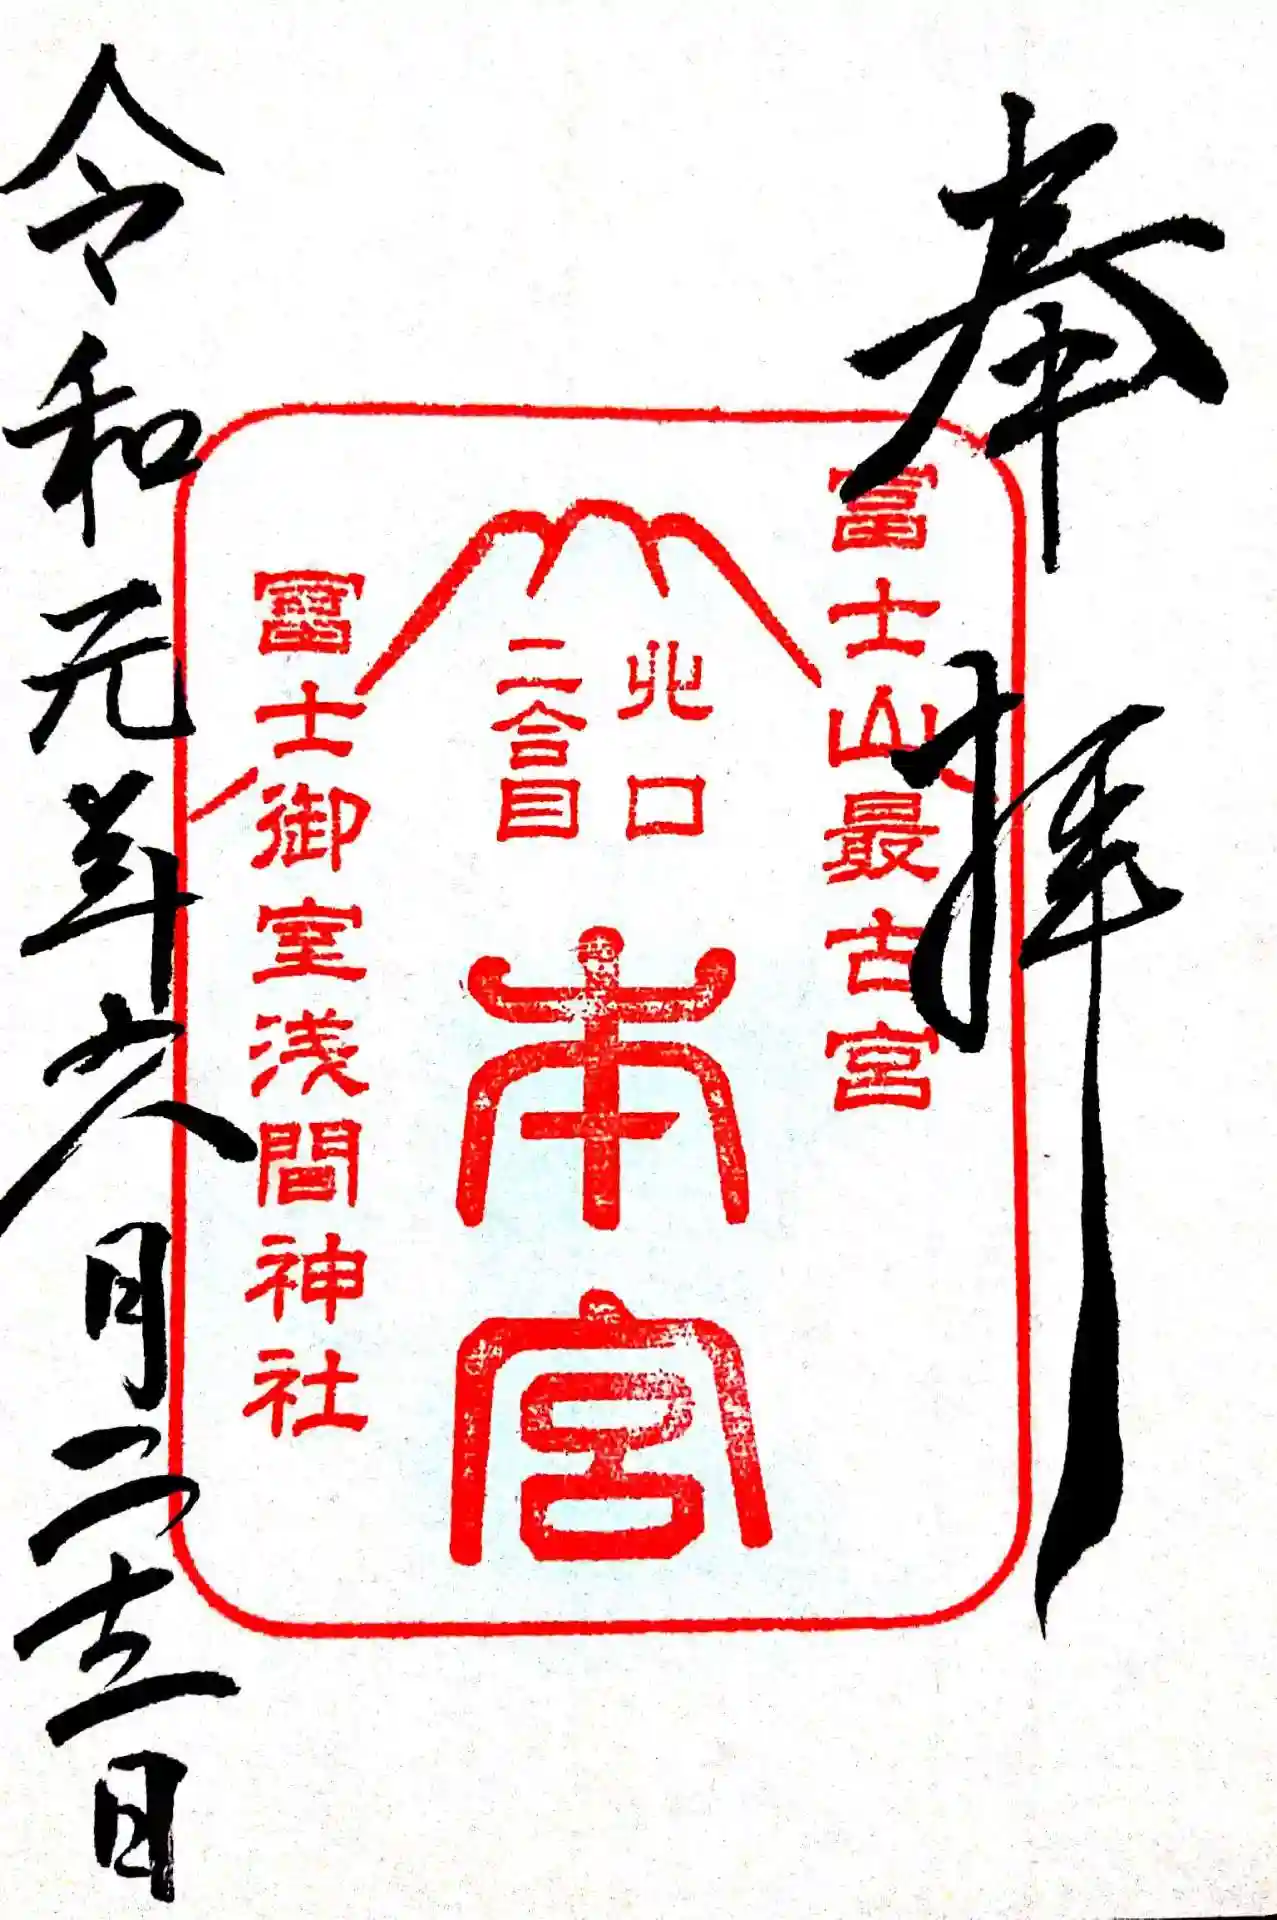 奉拝
富士山最古宮
北口
二合目
本宮
冨士御室浅間神社
令和元年六月二十二日